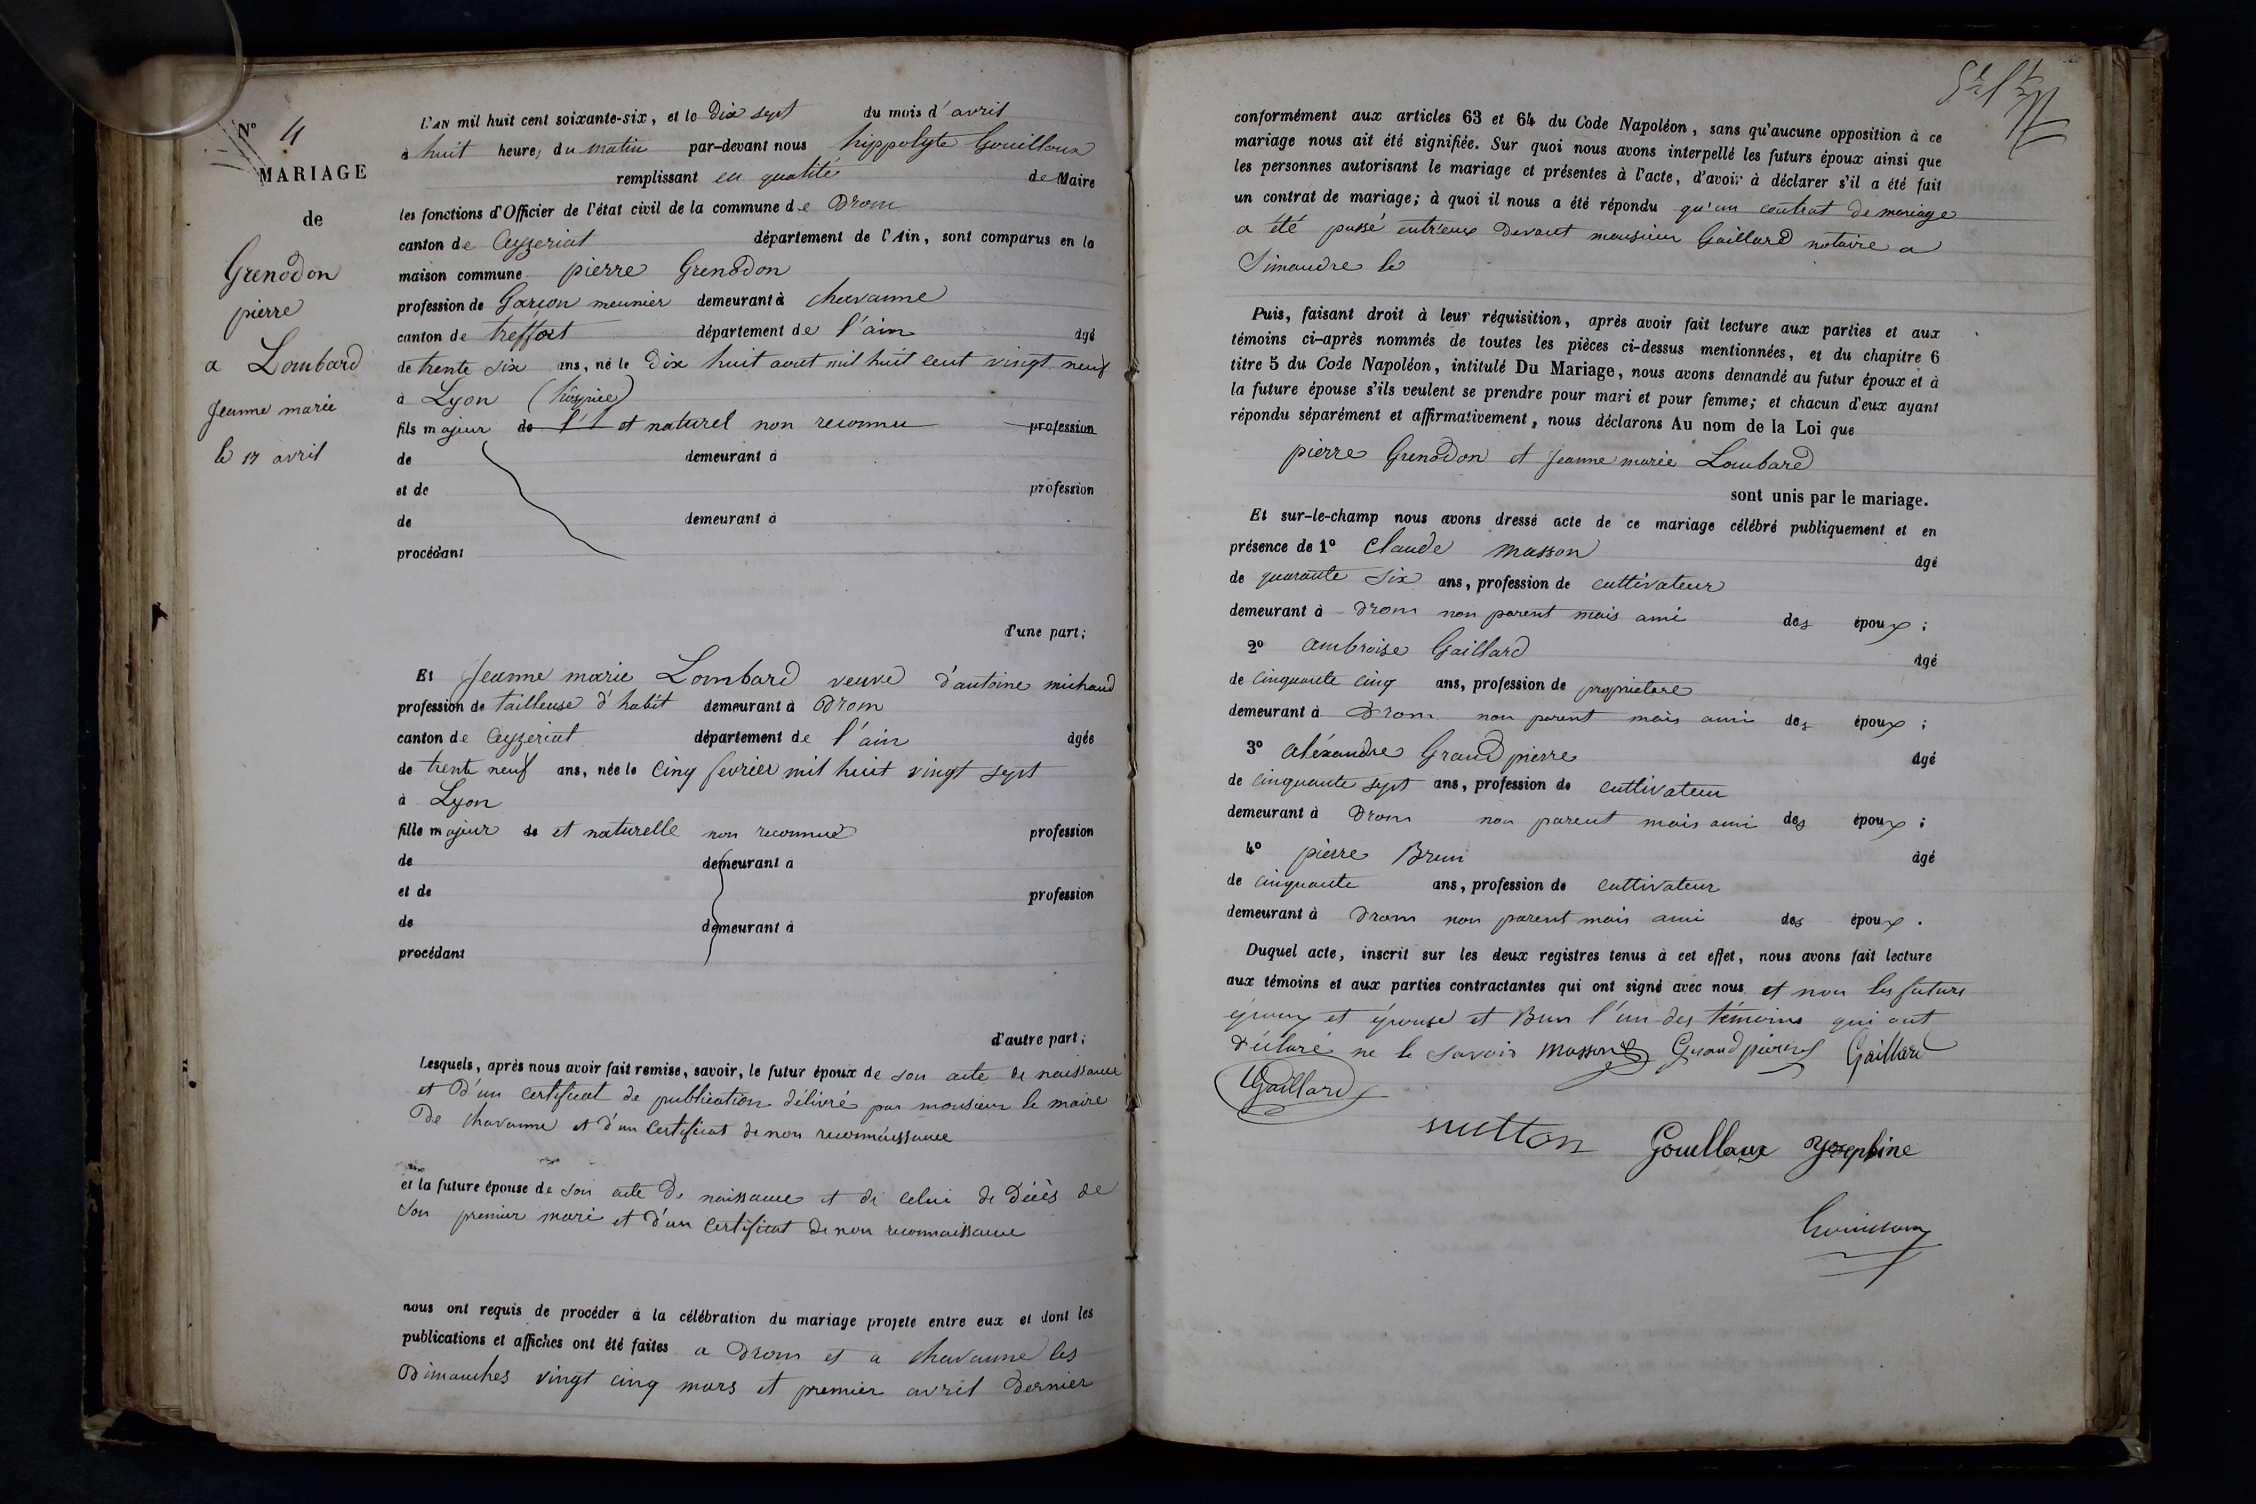 N° 4
MARIAGE
de
Grenodon
pierre
a Lombard
Jeanne marie
le 17 avril
L'AN mil huit cent soixante-six, et le Dix sept du mois d'avril
à huit heures du matin par-devant nous hippolyte Gouilloux
remplissant en qualité de Maire
les fonctions d'Officier de l'état civil de la commune de Drom
canton de Ceyzeriat département de l'Ain, sont comparus en la
maison commune pierre Grenodon
profession de Garcon meunier demeurant à chavanne
canton de treffort département de l'ain âgé
de trente six ans, né le Dix huit aout mil huit cent vingt neuf
à Lyon (hospice)
fils majeur de et naturel non reconnu profession
de demeurant à
et de profession
de demeurant à
procédant
d'une part;
Et Jeanne marie Lombard veuve d'antoine michaud
profession de tailleuse d'habit demeurant à Drom
canton de Ceyzeriat département de l'ain âgée
de trente neuf ans, née le cinq fevrier mil huit vingt sept
à Lyon
fille majeur de et naturelle non reconnue profession
de demeurant à
et de profession
de demeurant à
procédant
d'autre part;
Lesquels, après nous avoir fait remise, savoir, le futur époux de son acte de naissance
et d'un certificat de publication délivré par monsieur le maire
De chavanne et d'un certificat de non reconnaissance
et la future épouse de son acte De naissance et de celui de Décès de
son premier mari et d'un certificat de non reconnaissance
nous ont requis de procéder à la célébration du mariage projeté entre eux et dont les
publications et affiches ont été faites a Drom et a chavanne les
Dimanches vingt cinq mars et premier avril Dernier
conformément aux articles 63 et 64 du Code Napoléon, sans qu'aucune opposition à ce
mariage nous ait été signifiée. Sur quoi nous avons interpellé les futurs époux ainsi que
les personnes autorisant le mariage et présentes à l'acte, d'avoir à déclarer s'il a été fait
un contrat de mariage; à quoi il nous a été répondu qu'un contrat de mariage
a été passé entr'eux Devant monsieur Gaillard notaire a
Simandre le
Puis, faisant droit à leur réquisition, après avoir fait lecture aux parties et aux
témoins ci-après nommés de toutes les pièces ci-dessus mentionnées, et du chapitre 6
titre 5 du Code Napoléon, intitulé Du Mariage, nous avons demandé au futur époux et à
la future épouse s'ils veulent se prendre pour mari et pour femme; et chacun d'eux ayant
répondu séparément et affirmativement, nous déclarons Au nom de la Loi que
pierre Grenodon et Jeanne marie Lombard
sont unis par le mariage.
Et sur-le-champ nous avons dressé acte de ce mariage célébré publiquement et en
présence de 1° Claude masson âgé
de quarante six ans, profession de cultivateur
demeurant à Drom non parent mais ami des époux;
2° ambroise Gaillard âgé
de cinquante cinq ans, profession de proprietere
demeurant à Drom non parent mais ami des époux;
3° aléxandre Grandpierre âgé
de cinquante sept ans, profession de cultivateur
demeurant à Drom non parent mais ami des époux;
4° pierre Brun âgé
de cinquante ans, profession de cultivateur
demeurant à Drom non parent mais ami des époux.
Duquel acte, inscrit sur les deux registres tenus à cet effet, nous avons fait lecture
aux témoins et aux parties contractantes qui ont signé avec nous et non les futurs
époux et épouse et Brun l'un des témoins qui ont
déclaré ne le savoir Masson Grandpierre Gaillard
Gaillard
sutton Gouilloux Josephine
Gouilloux